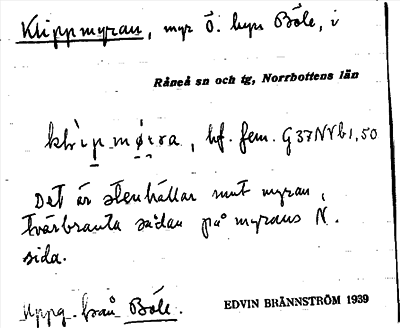 Klippmyran, myr Ö. byn Böle, i
Råneå sn och tg, Norrbottens län
bf. fem. G37NVb1,50
Det är stenhällar mot myran,
tvärbranta sådan på myrans N.
sida.
Uppg. från Böle.
EDVIN BRÄNNSTRÖM 1939